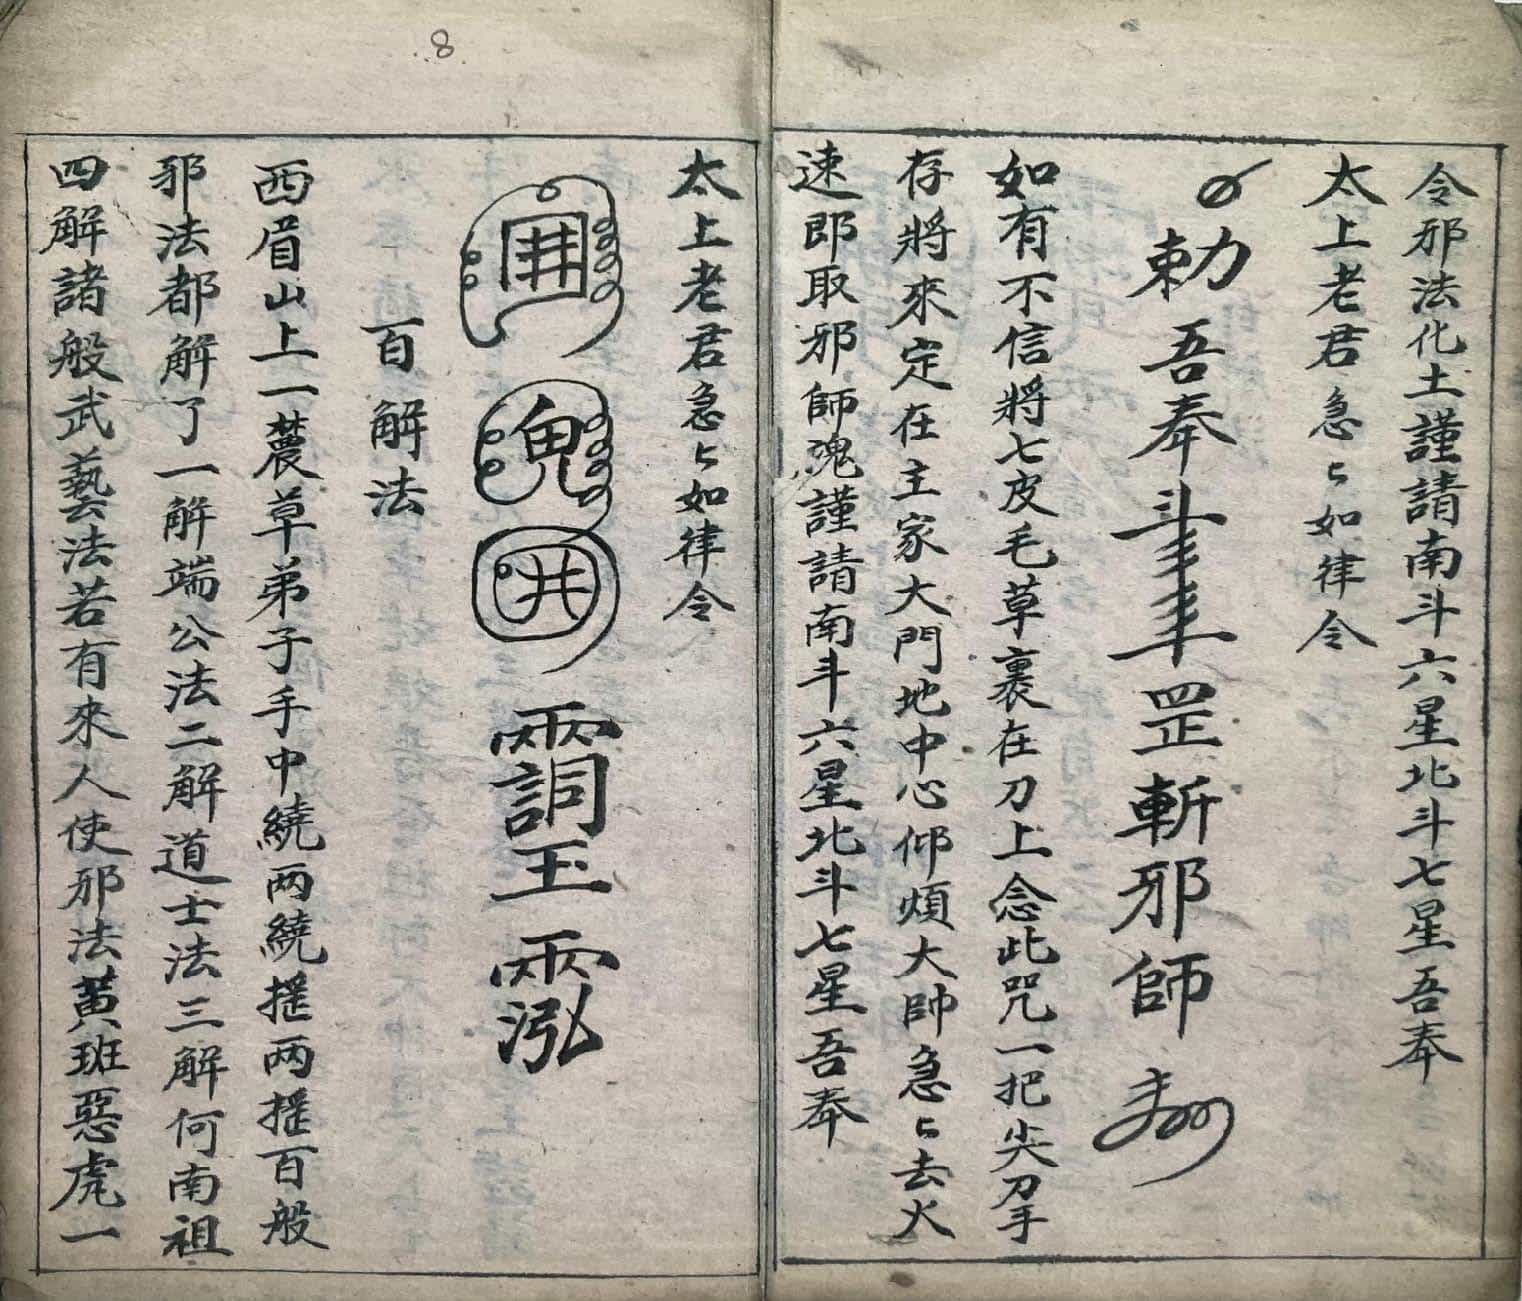 令邪法化土謹請南斗六星北斗七星吾奉
太上老君急〻如律令
勅吾奉 罡斬邪師
如有不信將七皮毛草裹在刀上念此咒一把尖刀手
存將來定在主家大門地中心仰煩大帥急〻去火
速即取邪師魂謹請南斗六星北斗七星吾奉
太上老君急〻如律令
8
百解法
西眉山上一䕬草弟子手中繞两繞摇两摇百般
邪法都解了一解端公法二解道士法三解何南祖
四解諸般武藝法若有來人使邪法黃班惡虎一